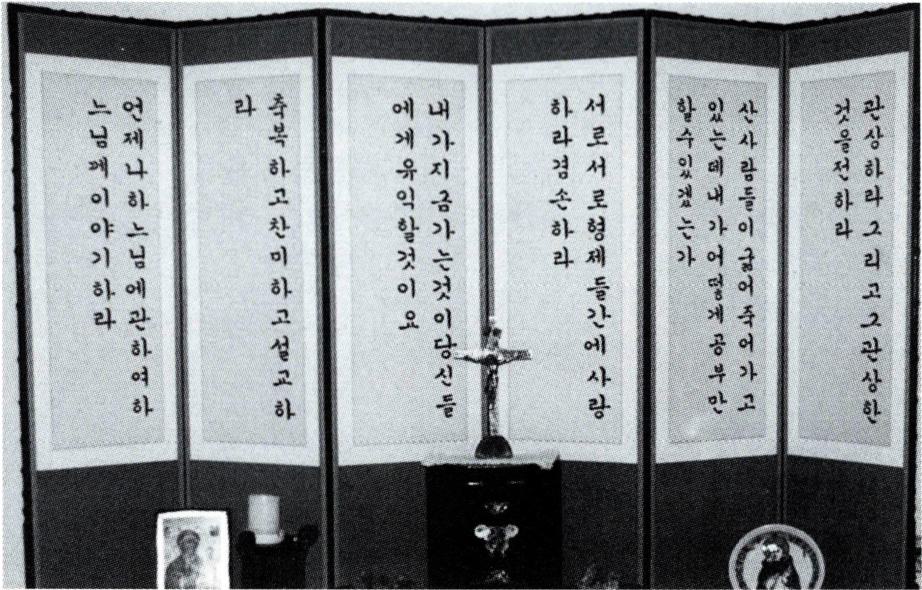 관상하라그리고그관상한
것을전하라
산사람들이굶어죽어가고
있는데내가어떻게공부만
할수있겠는가
서로서로형제들간에사랑
하라겸손하라
내가지금가는것이당신들
에게유익할것이요
축복하고찬미하고설교하
라
언제나하느님에관하여하
느님께이야기하라